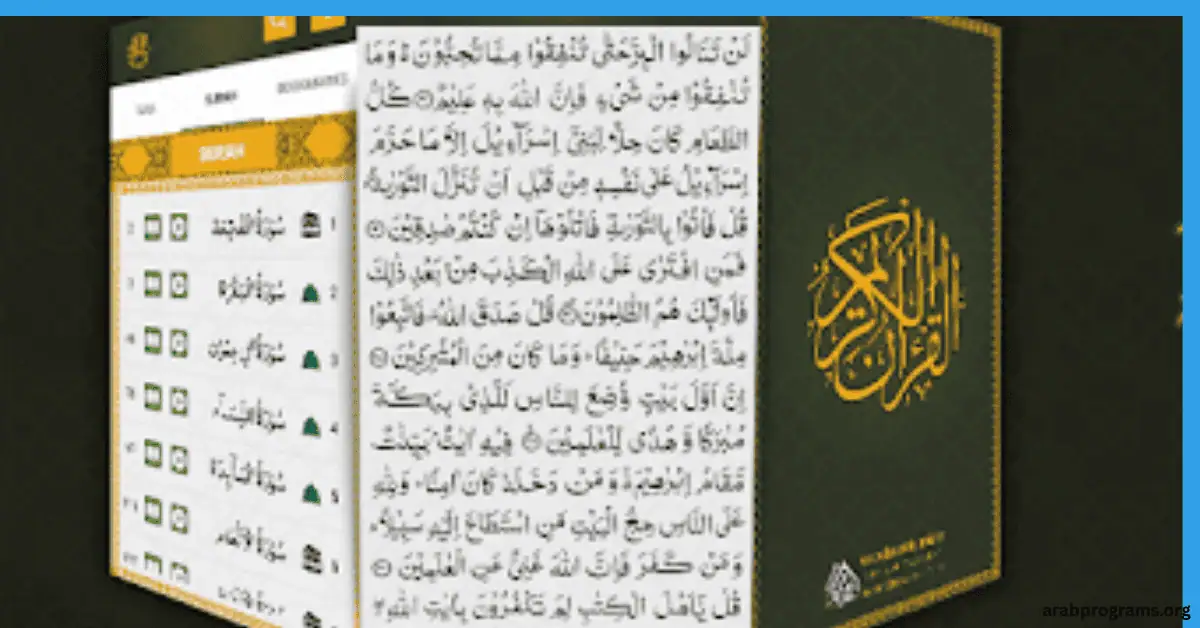 SURAH
سُوْرَةُ الْفَاتِحَة
سُوْرَةُ الْبَقَرَة
سُوْرَةُ اٰلِ عِمْرٰن
سُوْرَةُ النِّسَآء
سُوْرَةُ الْمَآئِدَة
سُوْرَةُ الْاَنْعَام
لَنْ تَنَالُوا الْبِرَّ حَتّٰى تُنْفِقُوْا مِمَّا تُحِبُّوْنَ وَمَا
تُنْفِقُوْا مِنْ شَيْءٍ فَاِنَّ اللّٰهَ بِهٖ عَلِيْمٌ كُلُّ
الطَّعَامِ كَانَ حِلًّا لِّبَنِيْٓ اِسْرَآءِيْلَ اِلَّا مَا حَرَّمَ
اِسْرَآءِيْلُ عَلٰى نَفْسِهٖ مِنْ قَبْلِ اَنْ تُنَزَّلَ التَّوْرٰىةُ
قُلْ فَاْتُوْا بِالتَّوْرٰىةِ فَاتْلُوْهَآ اِنْ كُنْتُمْ صٰدِقِيْنَ
فَمَنِ افْتَرٰى عَلَى اللّٰهِ الْكَذِبَ مِنْۢ بَعْدِ ذٰلِكَ
فَاُولٰٓئِكَ هُمُ الظّٰلِمُوْنَ قُلْ صَدَقَ اللّٰهُ فَاتَّبِعُوْا
مِلَّةَ اِبْرٰهِيْمَ حَنِيْفًا وَمَا كَانَ مِنَ الْمُشْرِكِيْنَ
اِنَّ اَوَّلَ بَيْتٍ وُّضِعَ لِلنَّاسِ لَلَّذِيْ بِبَكَّةَ
مُبٰرَكًا وَّهُدًى لِّلْعٰلَمِيْنَ فِيْهِ اٰيٰتٌۢ بَيِّنٰتٌ
مَّقَامُ اِبْرٰهِيْمَ وَمَنْ دَخَلَهٗ كَانَ اٰمِنًا وَلِلّٰهِ
عَلَى النَّاسِ حِجُّ الْبَيْتِ مَنِ اسْتَطَاعَ اِلَيْهِ سَبِيْلًا
وَمَنْ كَفَرَ فَاِنَّ اللّٰهَ غَنِيٌّ عَنِ الْعٰلَمِيْنَ
قُلْ يٰٓاَهْلَ الْكِتٰبِ لِمَ تَكْفُرُوْنَ بِاٰيٰتِ اللّٰهِ
القرآن الكريم
arabprograms.org